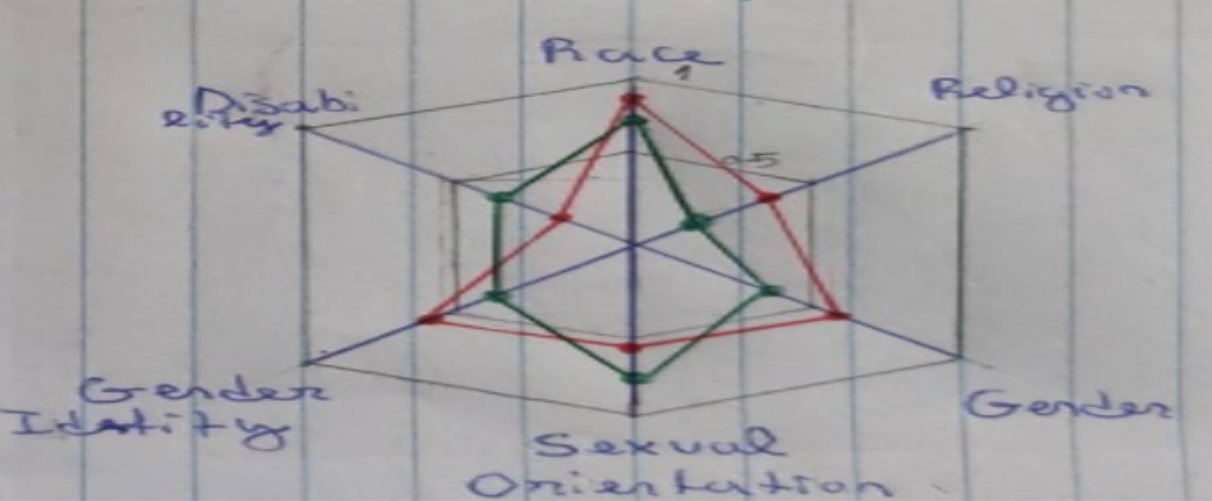 Race
1
Religion
Disabi
lity
0.5
Gender
Identity
Gender
Sexual
Orientation